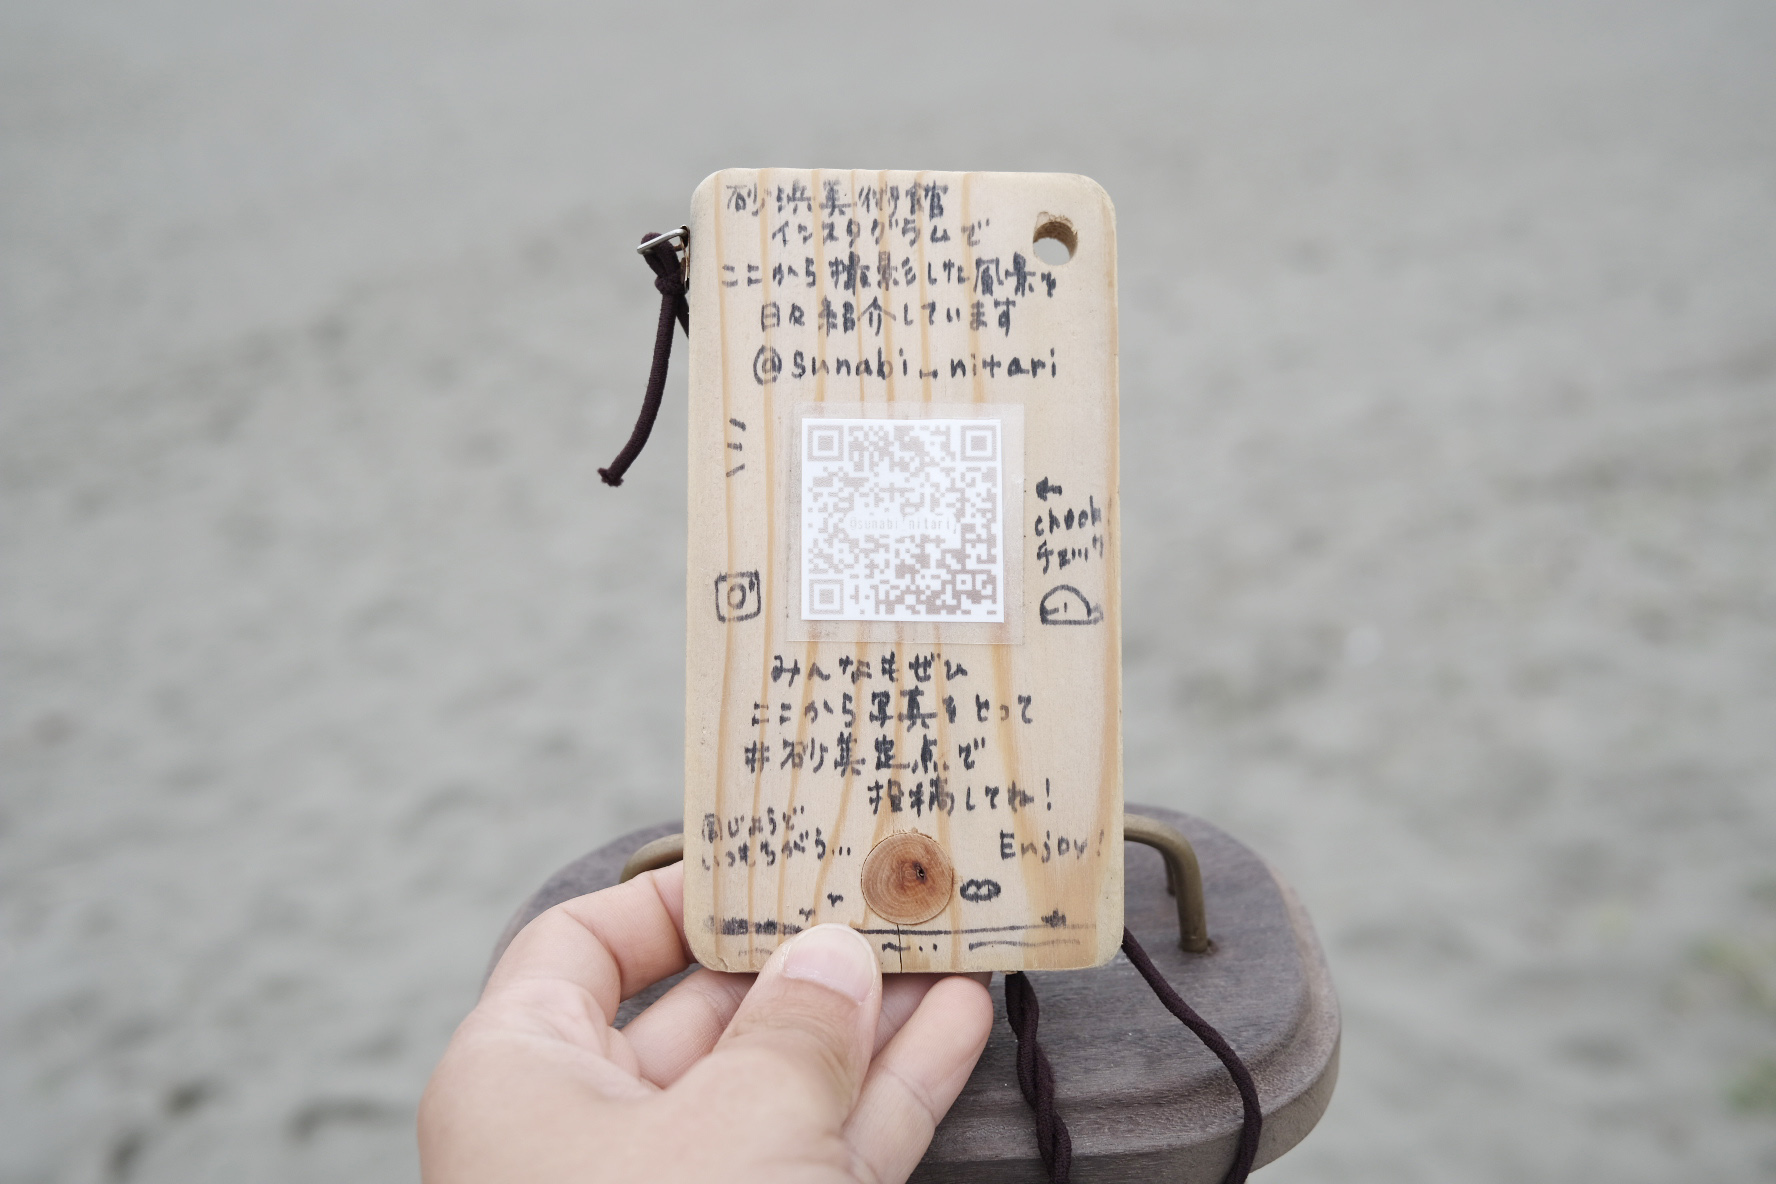 砂浜美術館
インスタグラムで
ここから撮影した風景を
日々紹介しています
@sunabi_nitari
@sunabi_nitari
←
check!
チェック
みんなもぜひ
ここから写真をとって
#砂美定点で
投稿してね!
同じようで
いつもちがう...
Enjoy!